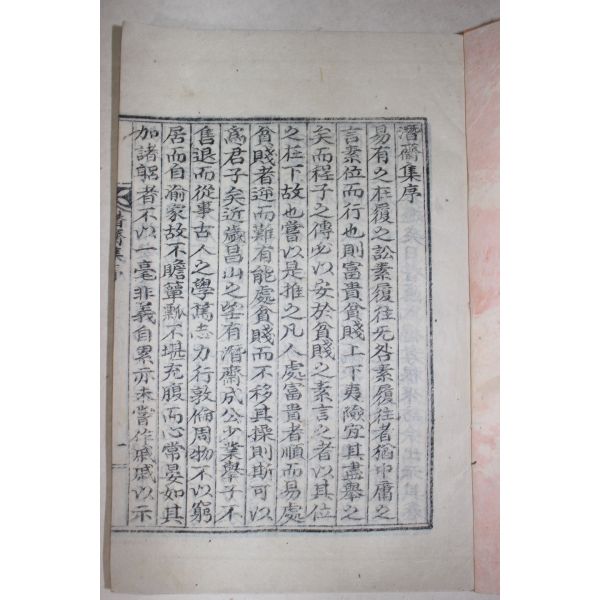 潛齋集序
易有之在履之訟素履往旡咎素履往者猶中庸之
言素位而行也則富貴貧賤上下夷險宜其盡擧之
矣而程子之傳必以安於貧賤之素言之者以其位
之在下故也嘗以是推之凡人處富貴者順而易處
貧賤者逆而難有能處貧賤而不移其操則斯可以
爲君子矣近歲昌山之望有潛齋成公少業擧子不
售退而從事古人之學篤志力行敦俗周物不以窮
居而自渝家故不贍簞瓢不堪充腹而心常晏如其
加諸躬者不以一毫非義自累亦未嘗作戚戚以示
潛齋集序